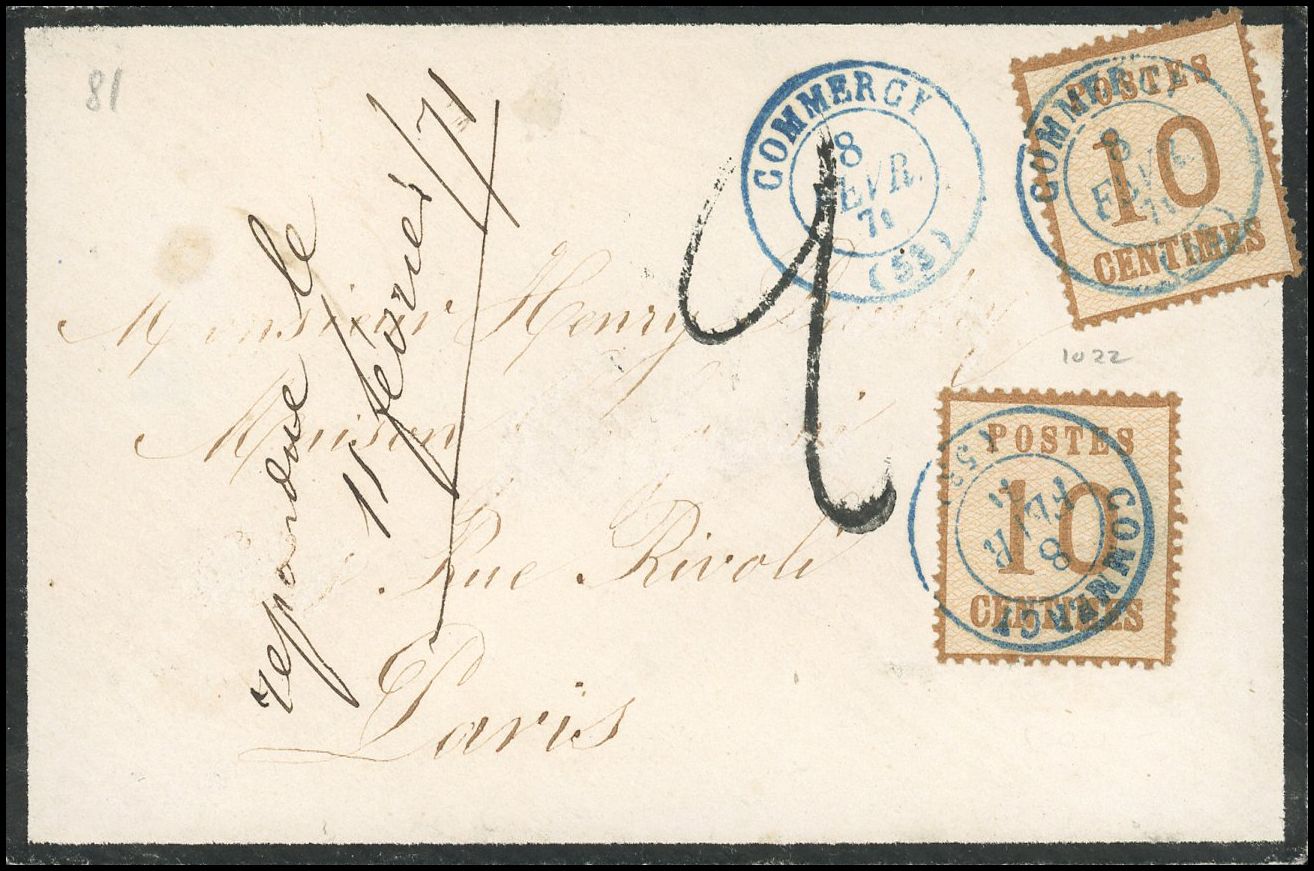 81
COMMERCY
8
FEVR.
71
(53)
POSTES
10
CENTIMES
COMMERCY
8
FEVR.
71
repondue le
11 fevrier/71
2
Monsieur Henry
Maison
Rue Rivoli
Paris
1022
POSTES
10
CENTIMES
COMMERCY
8
FEVR
71
(53)